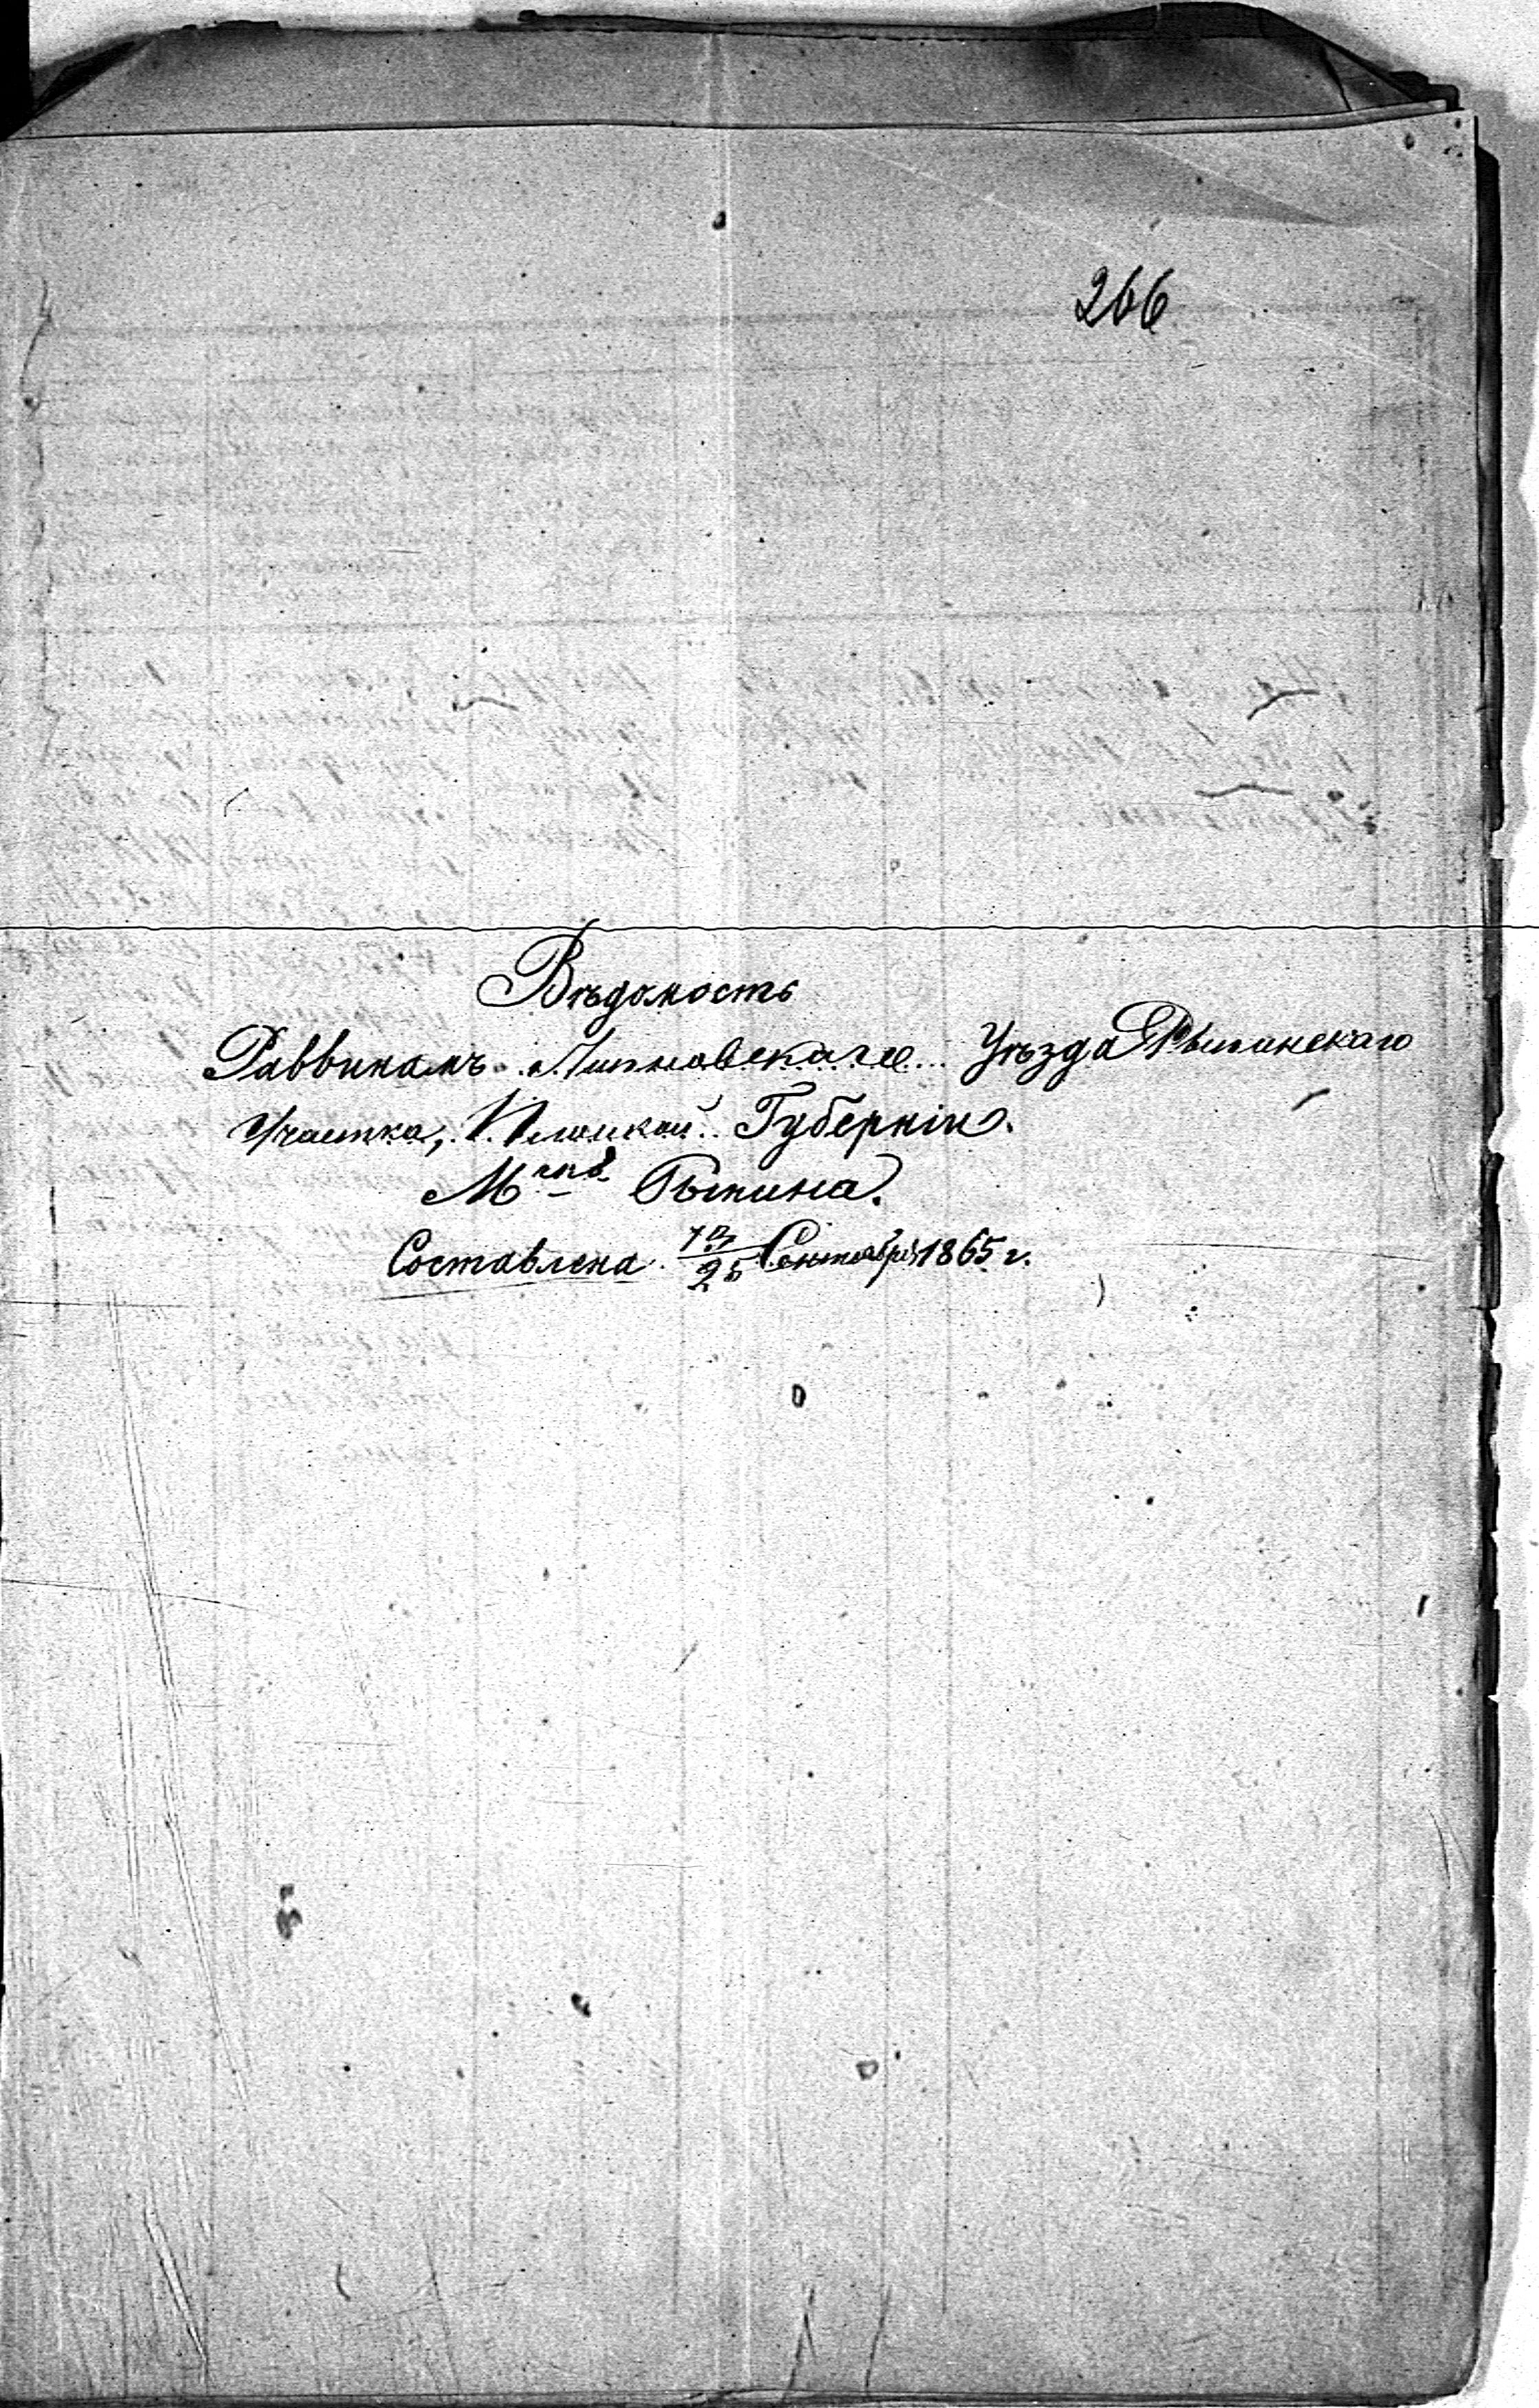 266
Вѣдомость
Раввинамъ Липновскаго Уѣзда Рыпинскаго
Участка, Плоцкой Губерніи.
Рыпина.
Составлена 13/25 Сентября 1865 г.